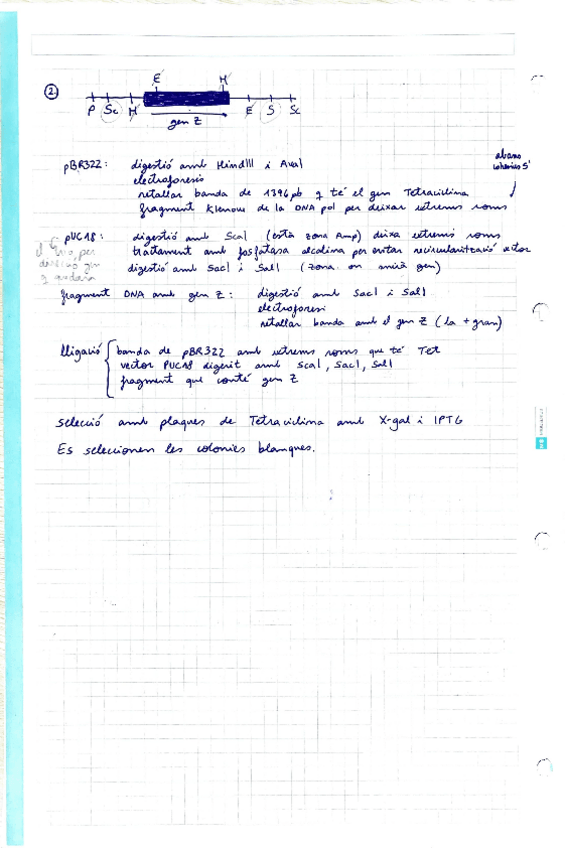 ②
E H
P Sc H E S Sc
gen Z
pBR322: digestió amb HindIII i AvaI
electroforesis
retallar banda de 1396pb q té el gen Tetraciclina
fragment Klenow de la DNA pol per deixar extrems roms
abans cohesius 5'
pUC18: digestió amb ScaI (està zona Amp) deixa extrems roms
tractament amb fosfatasa alcalina per evitar recircularització vector
digestió amb SacI i SalI (zona on anirà gen)
fragment DNA amb gen Z: digestió amb SacI i SalI
electroforesi
retallar banda amb el gen Z (la + gran)
lligació banda de pBR322 amb extrems roms que té Tet
vector pUC18 digerit amb ScaI, SacI, SalI
fragment que conté gen Z
selecció amb plaques de Tetraciclina amb X-gal i IPTG
Es seleccionen les colonies blanques.